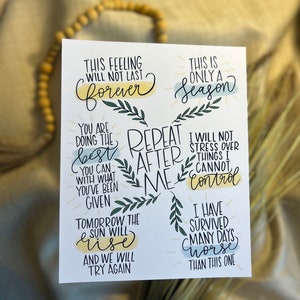 THIS FEELING
WILL NOT LAST
forever
THIS IS
ONLY A
season
YOU ARE
DOING THE
best
YOU CAN
WITH WHAT
YOU'VE BEEN
GIVEN
REPEAT
AFTER
ME
I WILL NOT
STRESS OVER
THINGS I
CANNOT
control
TOMORROW THE
SUN WILL
rise
AND WE WILL
TRY AGAIN
I HAVE
SURVIVED
MANY DAYS
worse
THAN THIS ONE